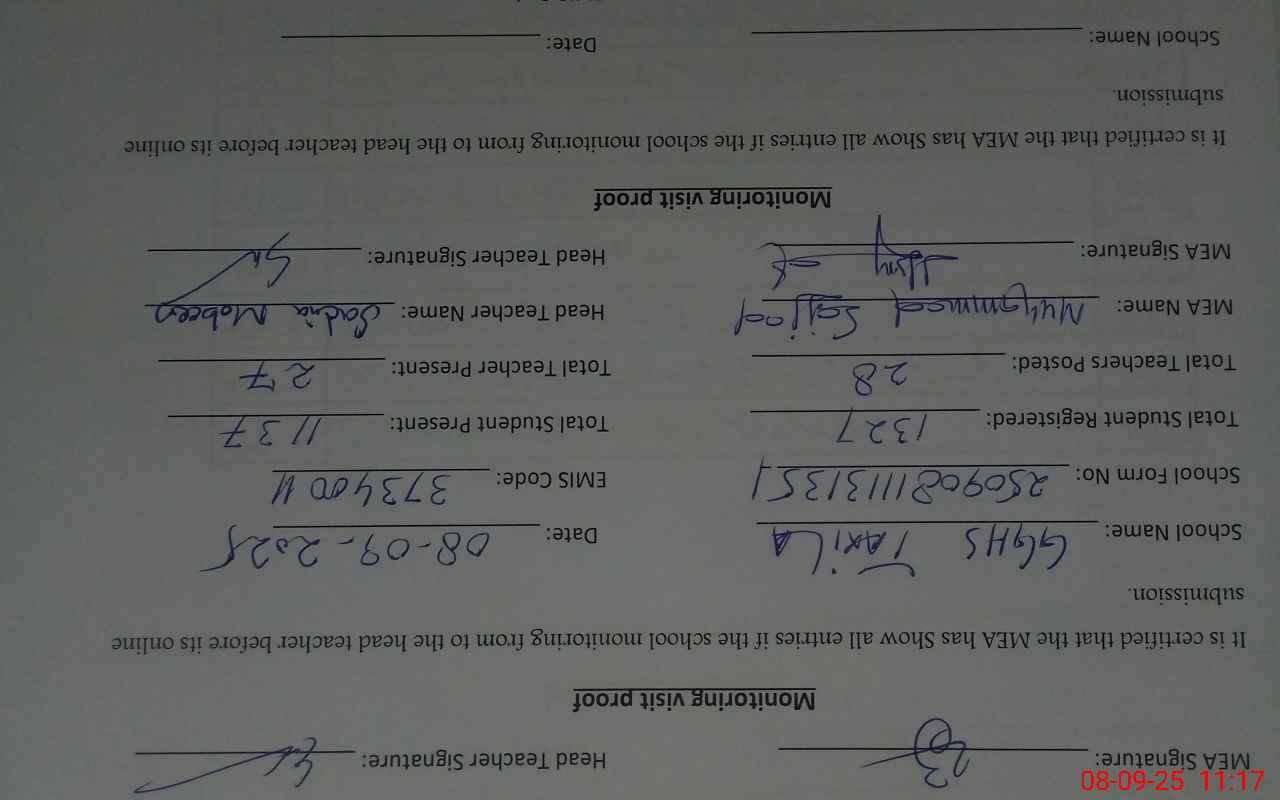 MEA Signature: Head Teacher Signature:
Monitoring visit proof
It is certified that the MEA has Show all entries if the school monitoring from to the head teacher before its online
submission.
School Name: GGHS TAxiLA Date: 08-09-2025
School Form No: EMIS Code:
Total Student Registered: 1327 Total Student Present: 1137
Total Teachers Posted: 28 Total Teacher Present: 27
MEA Name: Muhammad Sajjad Head Teacher Name: Sadia
MEA Signature: Head Teacher Signature:
Monitoring visit proof
It is certified that the MEA has Show all entries if the school monitoring from to the head teacher before its online
submission.
School Name: Date:
08-09-25 11:17